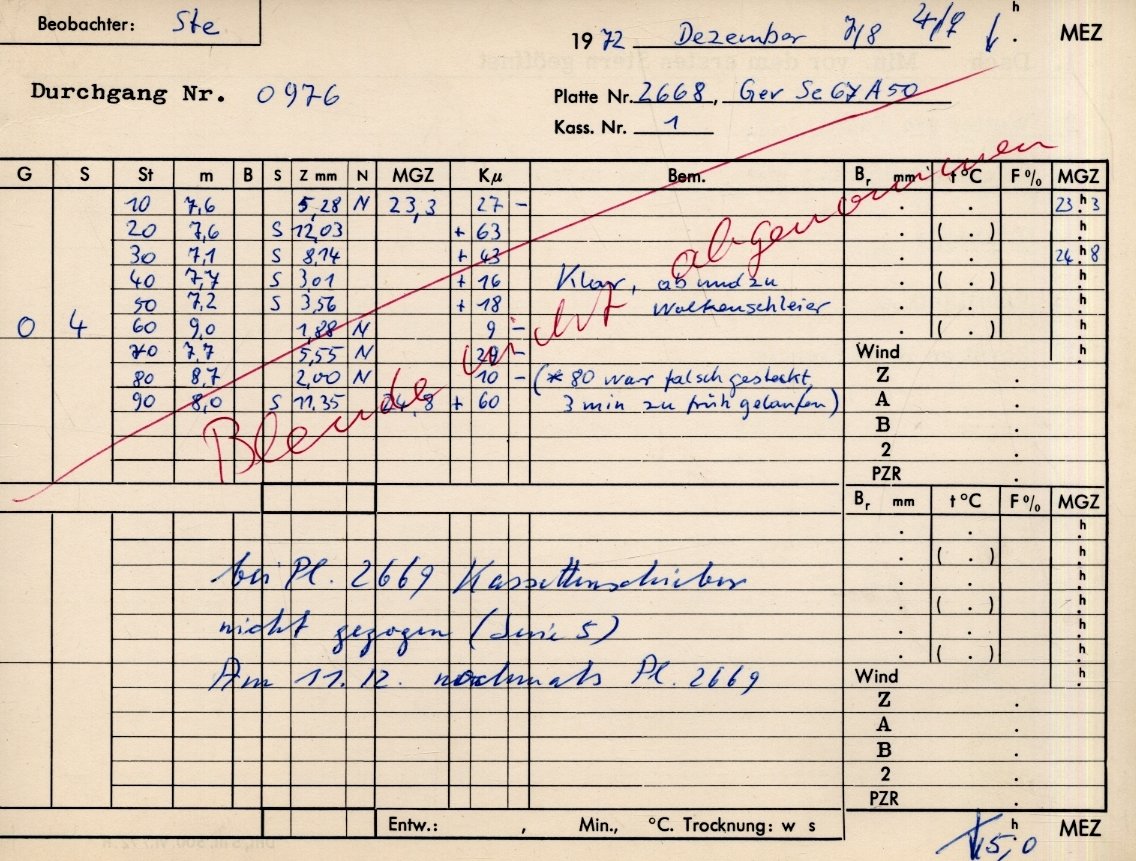 Beobachter: Ste
1972 Dezember 7/8 h . MEZ
Durchgang Nr. 0976
Platte Nr. 2668, Ger Se 67 A 50
Kass. Nr. 1
G S St m B S Z mm N MGZ Kμ Bem. Br mm t °C F% MGZ
10 7,6 5,28 N 23,3 27 - . . 23 h 3
20 7,6 S 12,03 + 63 . ( . ) h
30 7,1 S 8,14 + 43 . . 24 h 8
40 7,7 S 3,01 + 16 Klar, ab und zu . ( . ) h
50 7,2 S 3,56 + 18 Wolkenschleier . . h
0 4 60 9,0 1,88 N 9 - . ( . ) h
70 7,7 5,55 N - Wind h
80 8,7 2,00 N 10 - (* 80 war falsch gesteckt, Z .
90 8,0 S 11,35 24,8 + 60 3 min zu früh gelaufen) A .
B .
2 .
PZR .
Blende nicht abgenommen
Br mm t °C F% MGZ
. . h
. ( . ) h
bei Pl. 2669 Kassettenschieber . . h
. ( . ) h
nicht gezogen (Serie 5) . . h
. ( . ) h
Am 11.12. nochmals Pl. 2669 Wind h
Z .
A .
B .
2 .
PZR .
Entw.: , Min., °C. Trocknung: w s
15,0 h MEZ